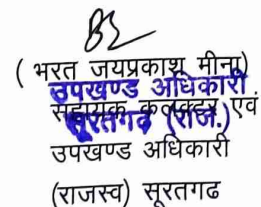 ( भरत जयप्रकाश मीना)
उपखण्ड अधिकारी
सहायक कलक्टर एवं
सूरतगढ (राज.)
उपखण्ड अधिकारी
(राजस्व) सूरतगढ